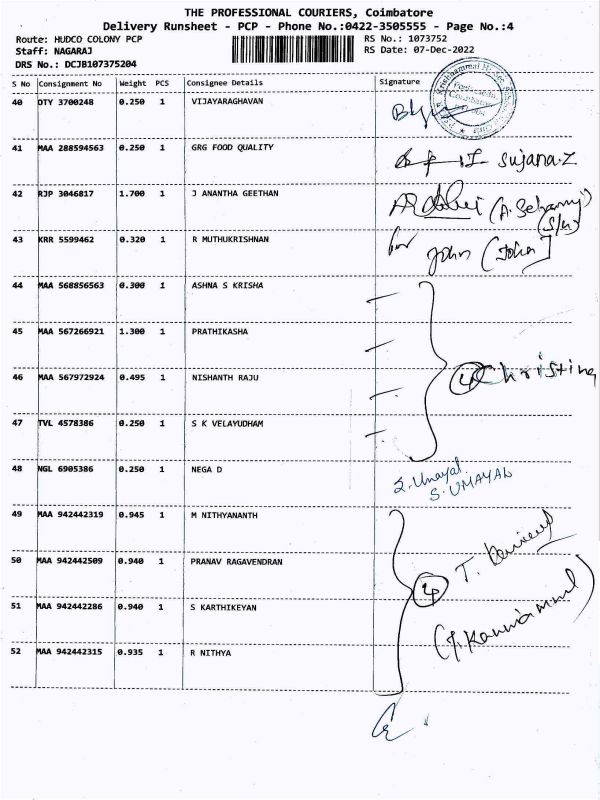 THE PROFESSIONAL COURIERS, Coimbatore
Delivery Runsheet - PCP - Phone No.:0422-3505555 - Page No.:4
Route: HUDCO COLONY PCP RS No.: 1073752
Staff: NAGARAJ RS Date: 07-Dec-2022
DRS No.: DCJB107375204
S No Consignment No Weight PCS Consignee Details Signature
40 OTY 3700248 0.250 1 VIJAYARAGHAVAN
41 MAA 288594563 0.250 1 GRG FOOD QUALITY Sujana.Z
42 RJP 3046817 1.700 1 J ANANTHA GEETHAN
43 KRR 5599462 0.320 1 R MUTHUKRISHNAN for John (John)
44 MAA 568856563 0.300 1 ASHNA S KRISHA
45 MAA 567266921 1.300 1 PRATHIKASHA
46 MAA 567972924 0.495 1 NISHANTH RAJU 4 Christina
47 TVL 4578386 0.250 1 S K VELAYUDHAM
48 NGL 6905386 0.250 1 NEGA D S. Umayal
S. UMAYAL
49 MAA 942442319 0.945 1 M NITHYANANTH
50 MAA 942442509 0.940 1 PRANAV RAGAVENDRAN 4 T.
51 MAA 942442286 0.940 1 S KARTHIKEYAN
52 MAA 942442315 0.935 1 R NITHYA